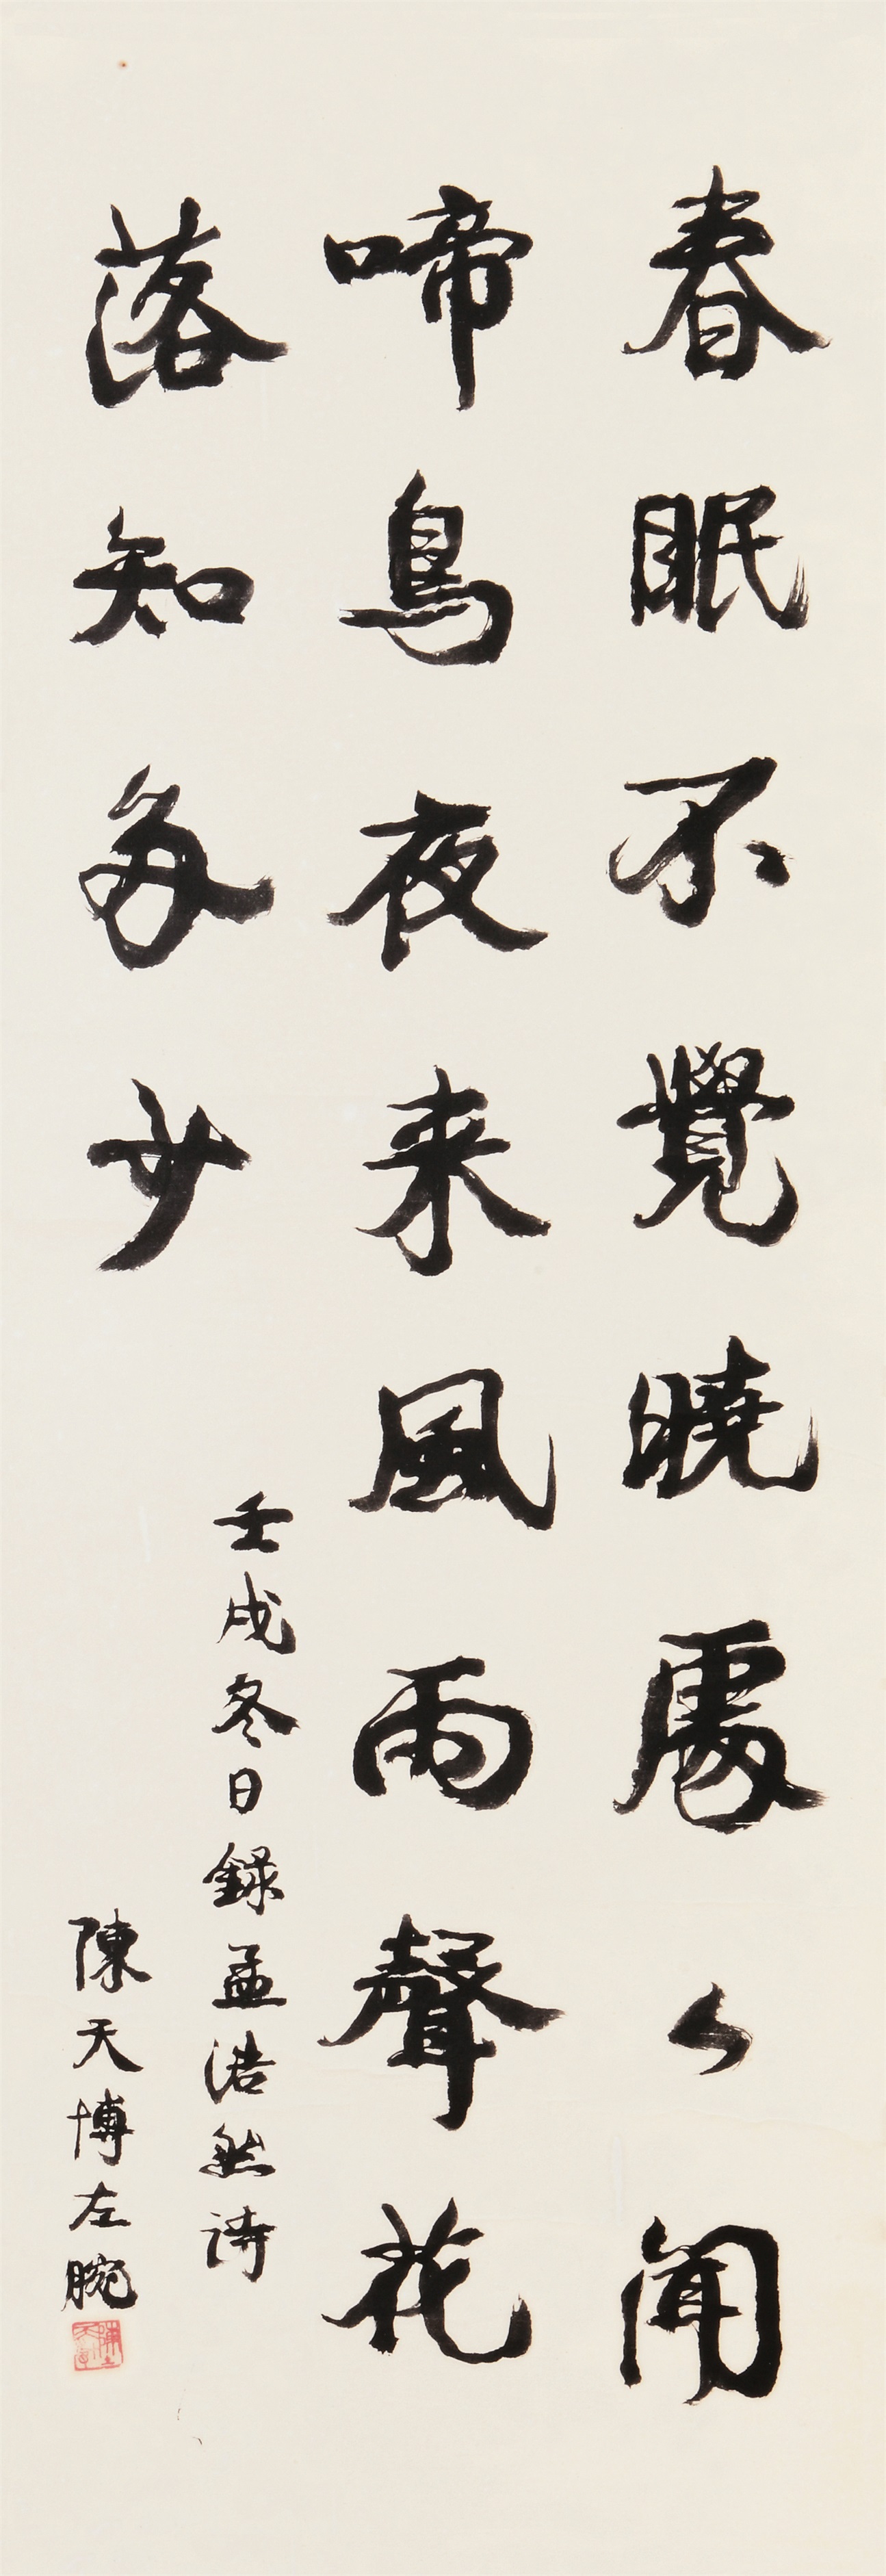 春眠不覺曉處々聞
啼鳥夜来風雨聲花
落知多少
壬戌冬日錄孟浩然詩
陳天博左腕